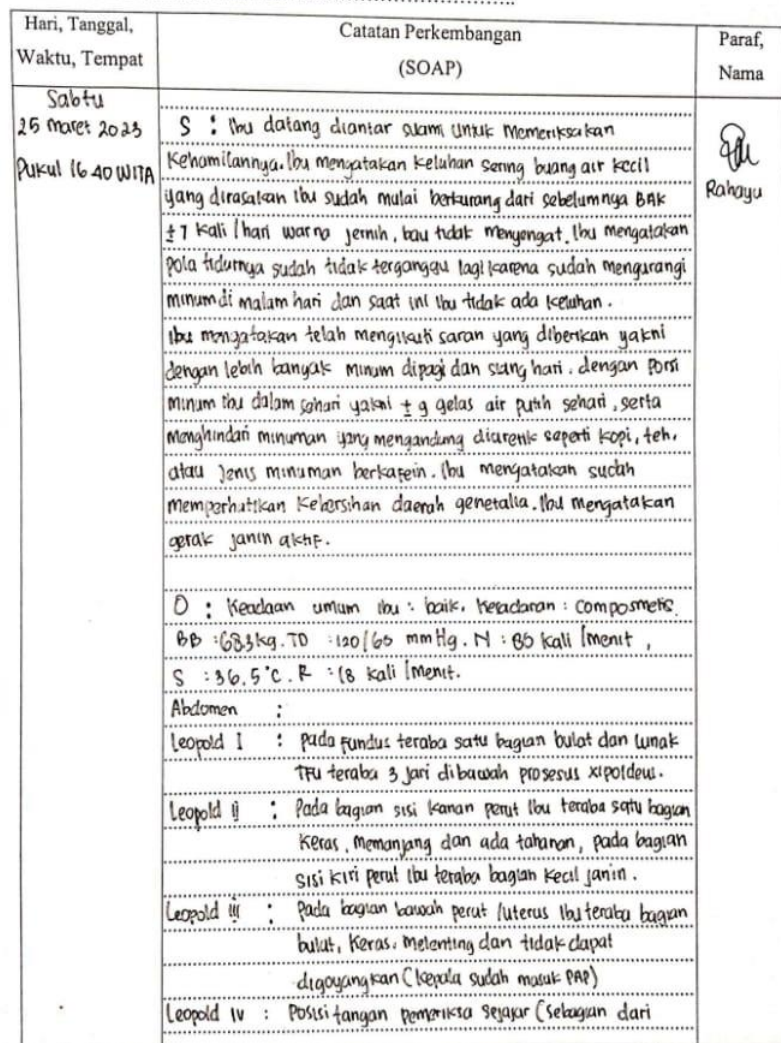 Hari, Tanggal,
Waktu, Tempat
Catatan Perkembangan
(SOAP)
Paraf,
Nama
Sabtu
25 maret 2023
Pukul 16 40 WITA
Rahayu
S : Ibu datang diantar suami untuk memeriksakan
Kehamilannya. Ibu mengatakan keluhan sering buang air kecil
yang dirasakan ibu sudah mulai berkurang dari sebelumnya BAK
± 7 kali /hari warna jernih, bau tidak menyengat. Ibu mengatakan
pola tidurnya sudah tidak terganggu lagi karena sudah mengurangi
minum di malam hari dan saat ini ibu tidak ada keluhan.
ibu mengatakan telah mengikuti saran yang diberikan yakni
dengan lebih banyak minum dipagi dan siang hari. dengan porsi
minum ibu dalam sehari yakni ± 9 gelas air putih sehari, serta
menghindari minuman yang mengandung diuretik seperti kopi, teh,
atau jenis minuman berkafein. Ibu mengatakan sudah
memperhatikan kebersihan daerah genetalia. Ibu mengatakan
gerak janin aktif.
O : Keadaan umum ibu : baik, kesadaran : composmetis
BB : 68.3 kg. TD : 120/65 mmHg. N : 85 kali /menit,
S : 36.5°C. R : 18 kali /menit.
Abdomen :
Leopold I : pada fundus teraba satu bagian bulat dan lunak
TFU teraba 3 jari dibawah prosesus xipoideus.
Leopold ij : Pada bagian sisi kanan perut ibu teraba satu bagian
keras, memanjang dan ada tahanan, pada bagian
sisi kiri perut ibu teraba bagian kecil janin.
Leopold iij : Pada bagian bawah perut /uterus ibu teraba bagian
bulat, keras, melenting dan tidak dapat
digoyangkan (kepala sudah masuk PAP)
Leopold IV : Posisi tangan pemeriksa sejajar (sebagian dari